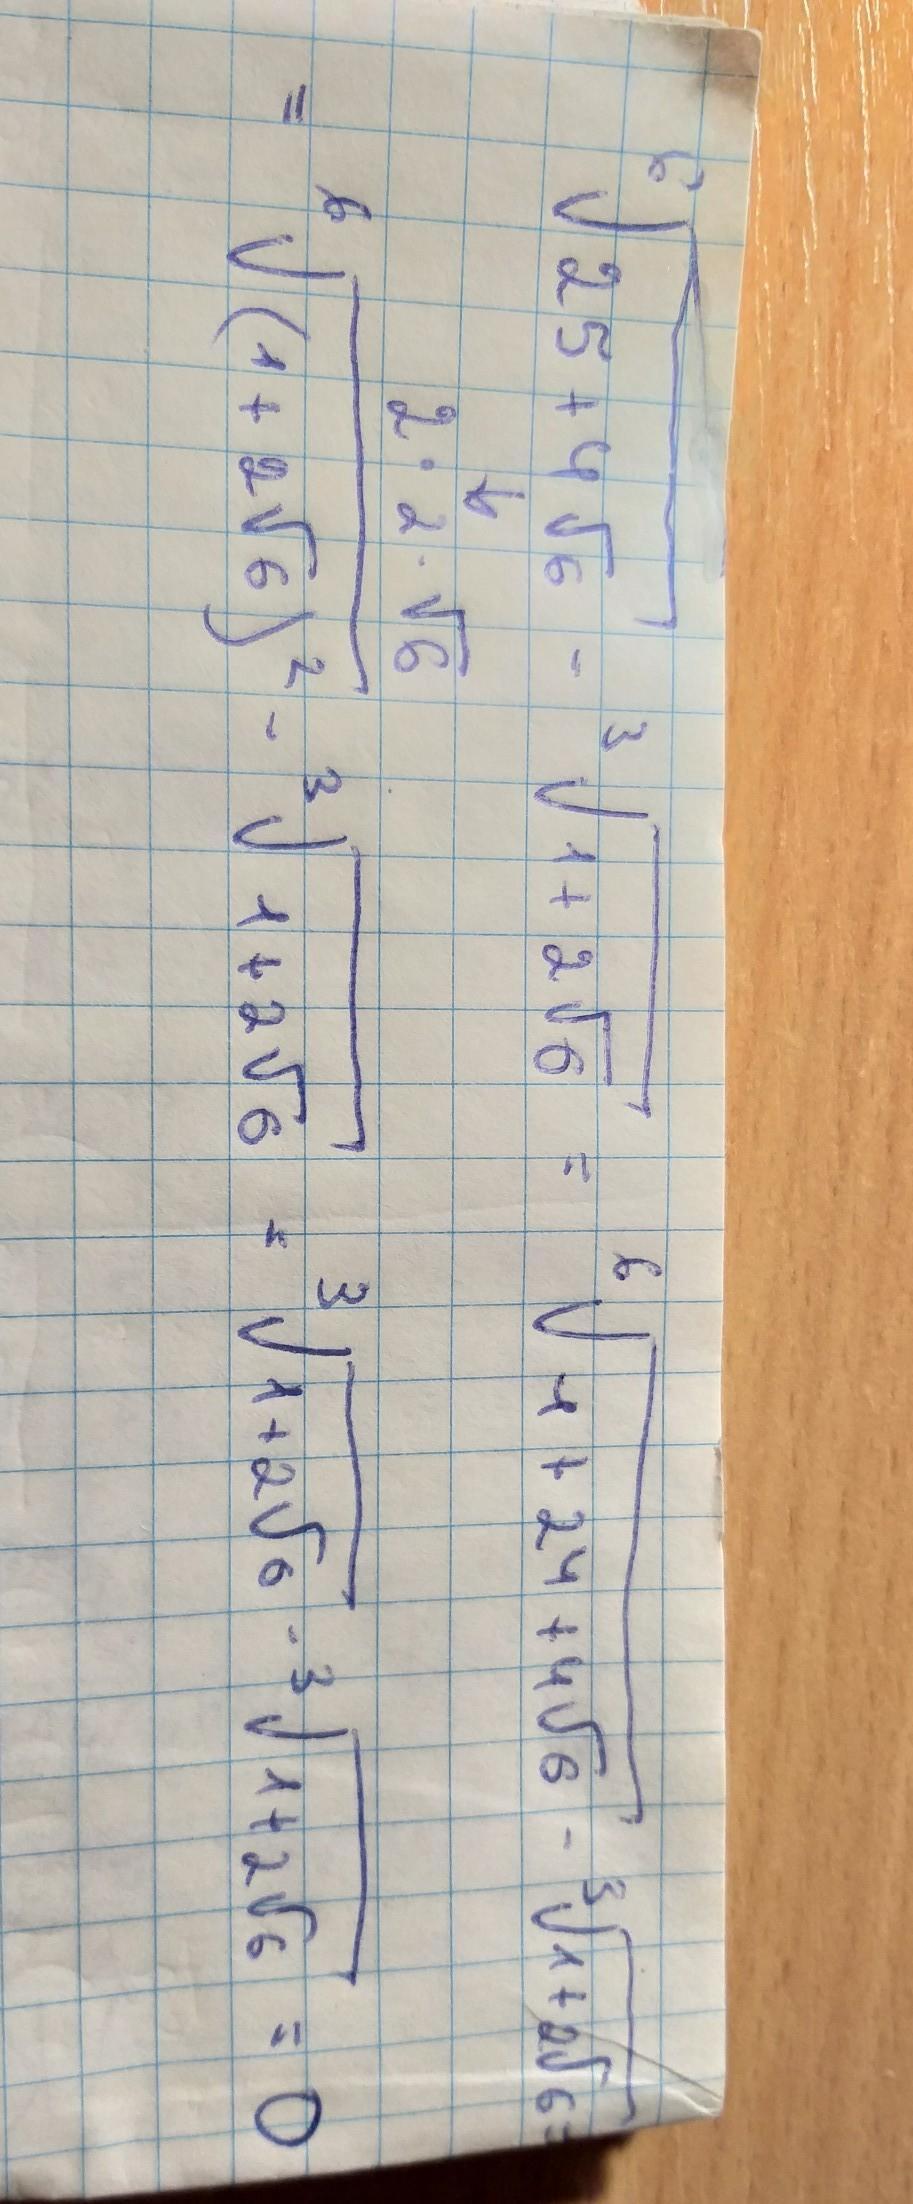 ⁶√(25 + 4√6) - ³√(1 + 2√6) = ⁶√(1 + 24 + 4√6) - ³√(1 + 2√6) =
2 · 2 · √6
= ⁶√((1 + 2√6)²) - ³√(1 + 2√6) = ³√(1 + 2√6) - ³√(1 + 2√6) = 0